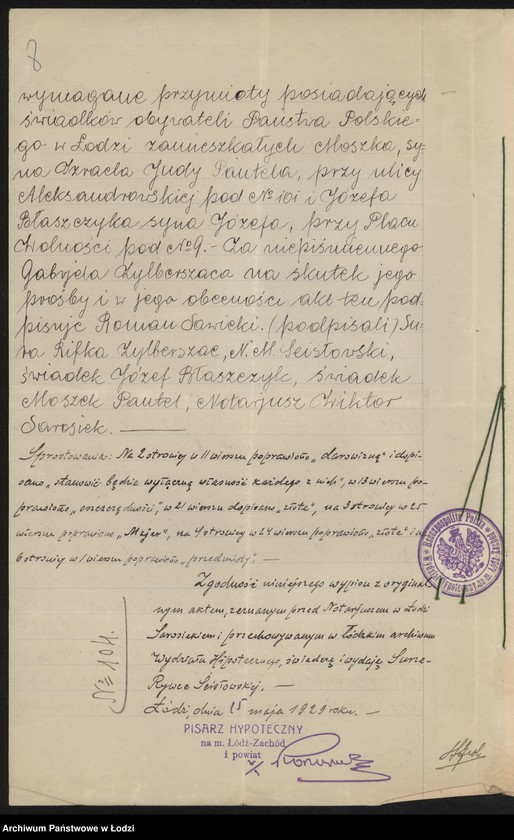 8
wymagane przymioty posiadających
świadków obywateli Państwa Polskie-
go w Łodzi zamieszkałych Moszka, sy-
na Izraela Judy Pantela, przy ulicy
Aleksandrowskiej pod № 101 i Józefa
Błaszczyka syna Józefa, przy Placu
Wolności pod № 9. – Za niepiśmiennego
Gabryela Zylberszaca na skutek jego
prośby i w jego obecności akt ten pod-
pisuje Roman Sawicki. (podpisali) Su-
ra Rifka Zylberszac, N. M. Seisłowski,
świadek Józef Błaszczyk, świadek
Moszek Pantel, Notarjusz Wiktor
Sarosiek. —
Sprostowania: Na 2 stronicy w 11 wierszu poprawiono „darowizną" i dopi-
sano „stanowić będzie wyłączną własność każdego z nich", w 13 wierszu po-
prawiono „oszczędności", w 21 wierszu dopisano „złote", na 3 stronicy w 25
wierszu poprawiono „Majer", na 4 stronicy w 24 wierszu poprawiono „złote" i na
6 stronicy w 1 wierszu poprawiono „przedmioty". —
Zgodność niniejszego wypisu z oryginal-
nym aktem, zeznanym przed Notarjuszem w Łodzi
Sarosiekiem i przechowywanym w Łódzkim archiwum
Wydziału Hipotecznego, świadczę i wydaję Surze-
Rywce Seisłowskiej. —
Łódź, dnia 15 maja 1929 roku. —
№ 104.
PISARZ HYPOTECZNY
na m. Łódź-Zachód
i powiat
Rzeczpospolita Polska
Archiwum Państwowe w Łodzi